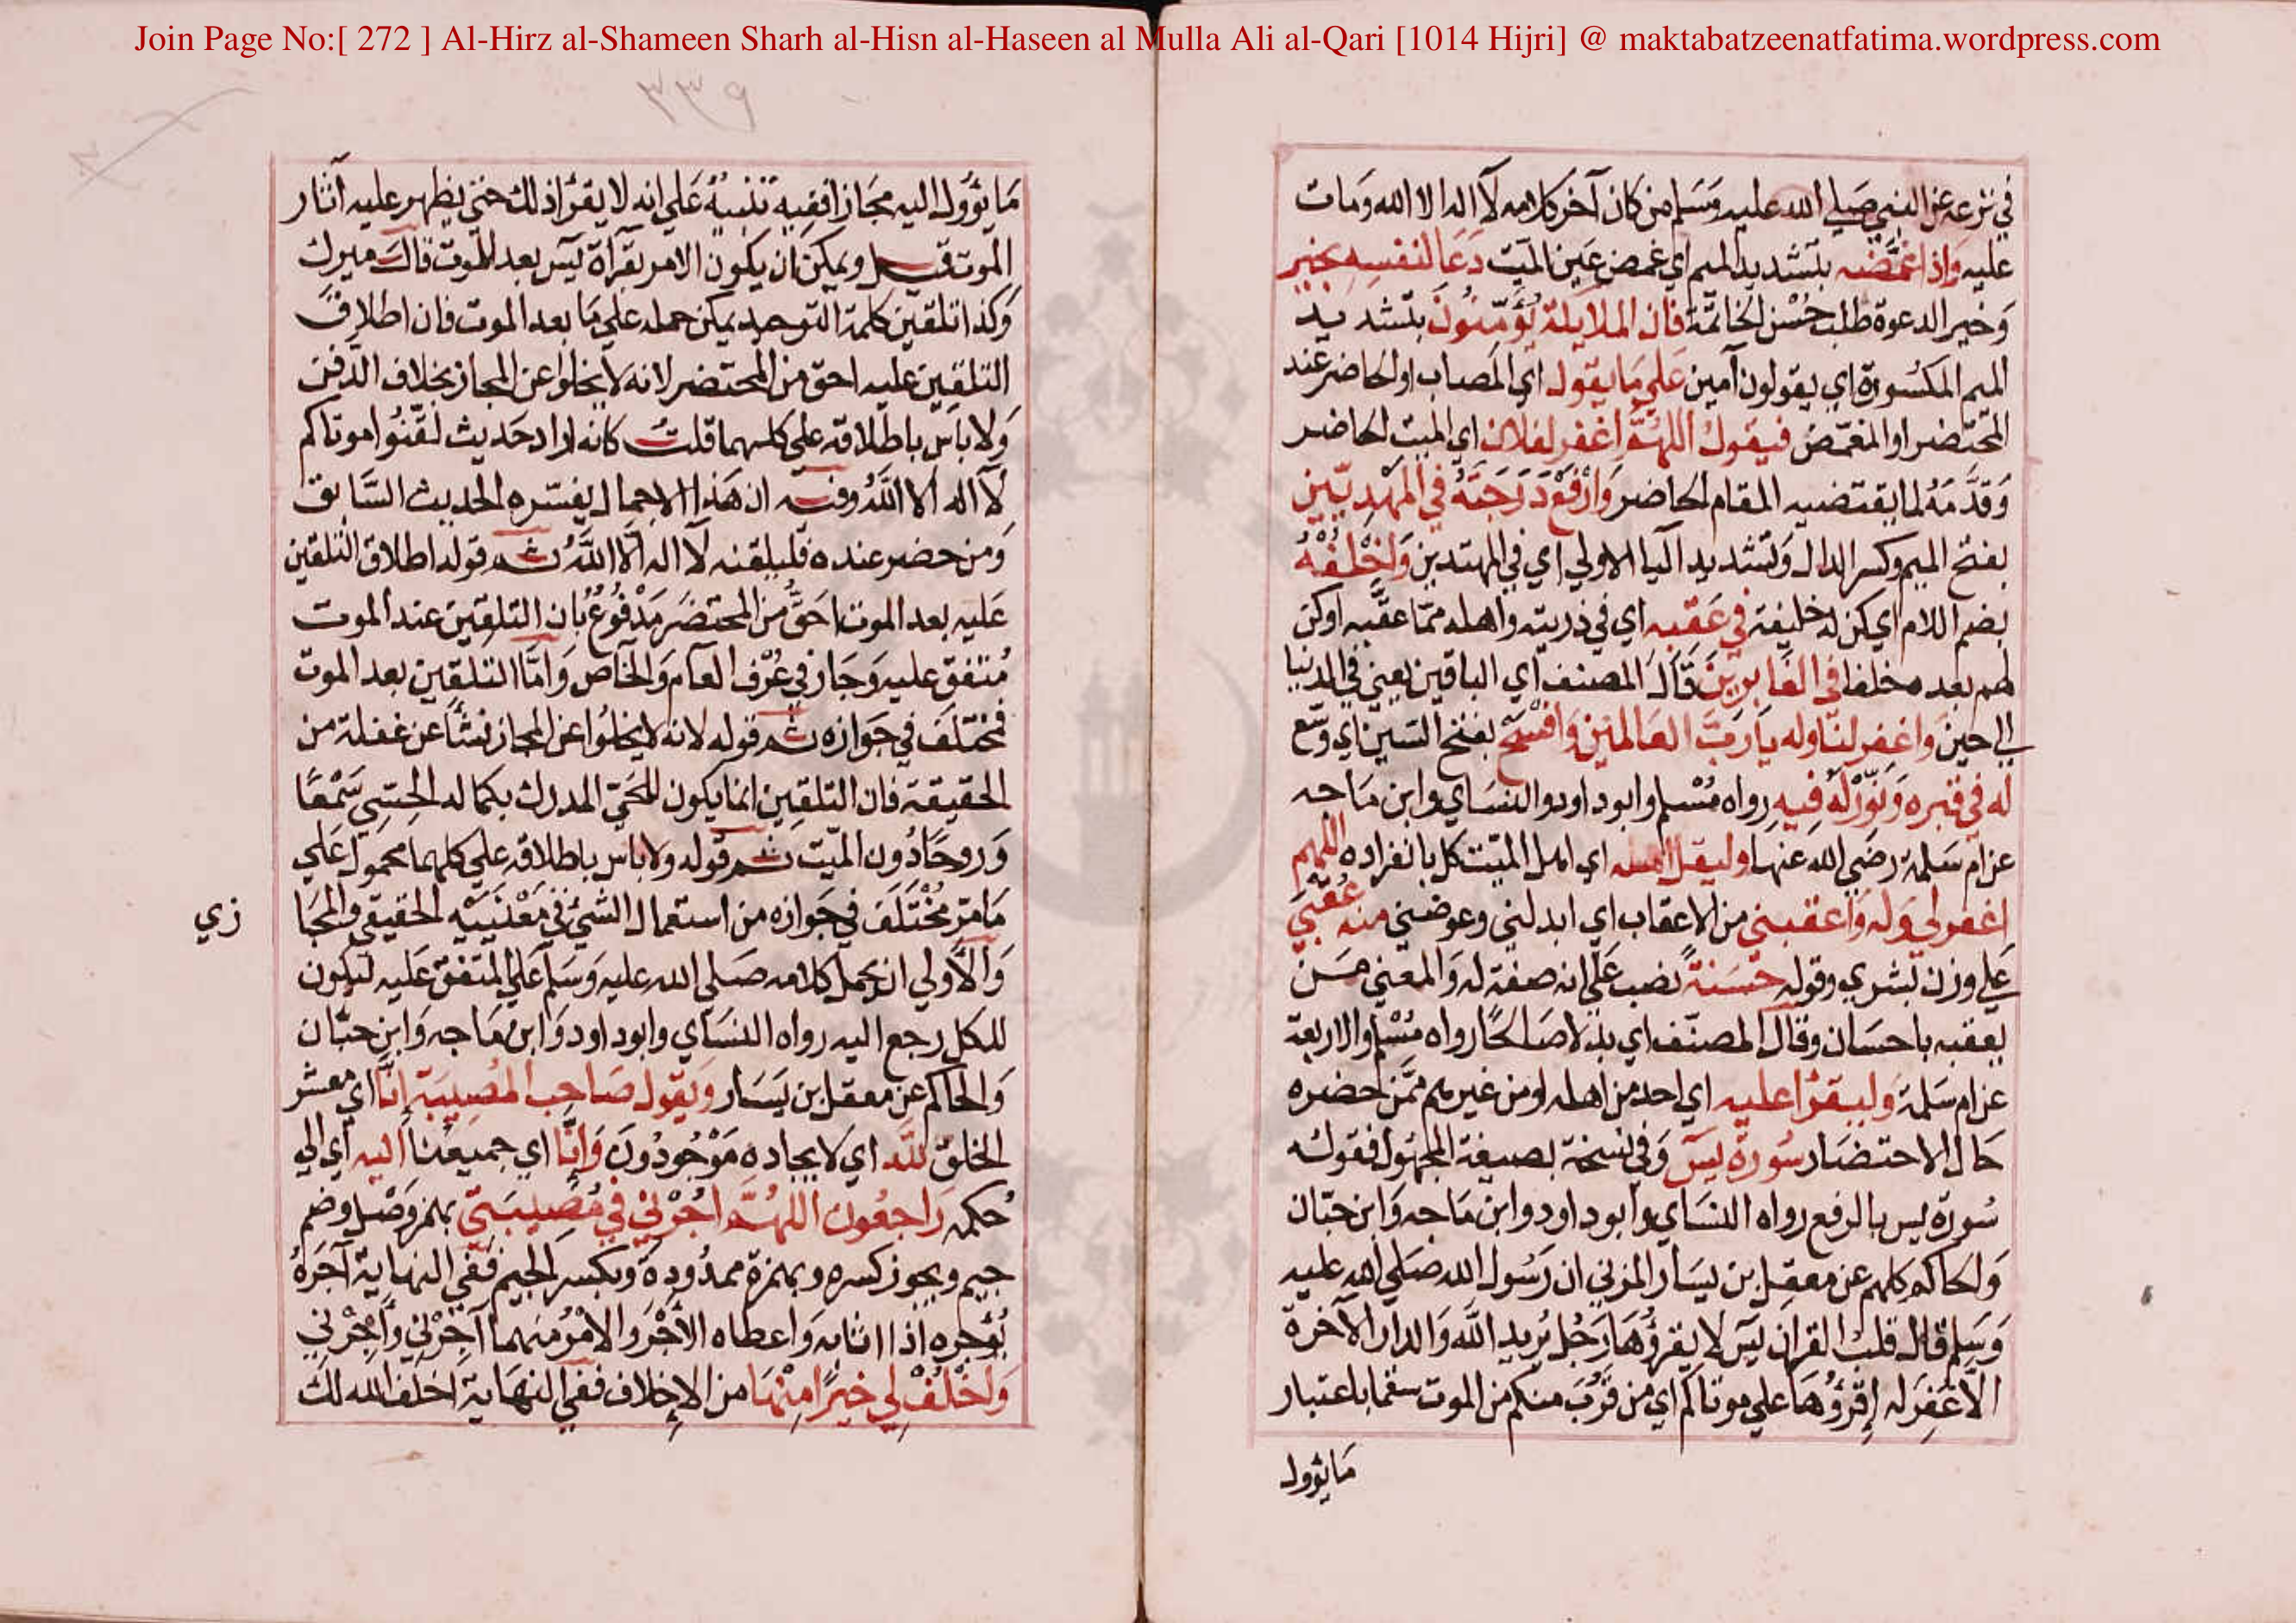 Join Page No:[ 272 ] Al-Hirz al-Shameen Sharh al-Hisn al-Haseen al Mulla Ali al-Qari [1014 Hijri] @ maktabatzeenatfatima.wordpress.com
في نزعه عن النبي صلي الله عليه وسلم من كان آخر كلامه لآ اله الا الله ومات
عليه واذا غمَّضه بتشديد الميم اي غمض عين الميت دعا لنفسه بخير
وخير الدعوة طلب حُسْن الخاتمة فان الملايكة يُؤَمِّنُونَ بتشديد
الميم المكسورة اي يقولون آمين علي ما يقول اي المصاب او الحاضر عند
المحتضر او المغمّض فيقول اللهُمَّ اغفر لفلان اي الميت الحاضر
وقدَّمَهُ لما يقتضيه المقام الحاضر وارْفَعْ دَرَجَتَهُ في المهديّين
بفتح الميم وكسر الدال وتشديد اليا الاولي اي في المهتدين وَاخْلُفْهُ
بضم اللام اي كن له خليفة في عَقِبِه اي في ذريته واهله ممّا عقَّبه او كن
لهم بعده مخلفا في الغابرينَ قال المصنف اي الباقين يعني في الدنيا
الي حين واغفِر لنا وله يا ربّ العالمين وافْسَح بفتح السين اي وسّع
له في قبره ونوّر له فيه رواه مُسْلم وابو داود والنسَاي وابن ماجه
عن ام سَلمة رضي الله عنها وليقل اهله اي اهل الميّت كل بانفراده اللهم
اغفر لي وله واعقبني من الاعقاب اي ابدلني وعوضني منه عُقْبَي
علي وزن بُشري وقوله حَسَنَةً نصب علي انه صفة له والمعني حسن
يعقبه باحسان وقال المصنّف اي بدلا صَالحًا رواه مُسْلم والاربعة
عن ام سَلمة وليقرأ عليه اي احد من اهله او من غيرهم ممّن حضره
حَال الاحتضار سُورة يسٓ وفي نسخة بصيغة المجهُول فقوله
سُورة يس بالرفع رواه النسَاي وابو داود وابن ماجه وابن حبّان
والحاكم كلهم عن معقِل بن يسَار المزني ان رسُول الله صَلي الله عليه
وسلم قال قلب القران يسٓ لا يقرؤُهَا رَجُل يُريد الله والدار الآخرة
الّا غُفِرَ له اِقْرَؤُهَا علي موتاكم اي من قَرُبَ منكم من الموت باعتبار
ما يؤول
٣٣٩
مَا يؤُول اليه مجَازا ففيه تنبيهٌ عَلي انه لا يقرأ ذلك حتي يظهر عليه آثار
الموت قيل ويمكن ان يكون الامر بقرآة يسٓ بعد الموت قال ميرك
وكذا تلقين كلمة التوحيد يمكن حمله علي ما بعد الموت فان اطلاق
التلقين عليه احق من المحتضر لانه لا يخلوا عن المجاز بخلاف الدّفن
ولا بأس باطلاقه علي كلهما قلتُ كانه اراد حَديث لقّنُوا موتاكم
لآ اله الا اللَّهُ وفيه ان هَذا الاجمال يفسّره الحديث السَّابق
ومن حضر عنده فليلقنه لآ اله الّا اللَّهُ ثم قوله اطلاق التلقين
عليه بعد الموت احَقُّ من المحتضَر مَدْفُوعٌ بان التلقين عند الموت
مُتفق عليه وجَاز في عُرْف العام والخاص وامَّا التلقين بعد الموت
فمختَلَف في جَوازه ثم قوله لانه لا يخلُوا عن المجاز نشأ عن غفلة من
الحقيقة فان التلقين انما يكون للحَيّ المدرك بكماله الحِسّي سَمْعًا
وَرُوحًا دُون الميّت ثم قوله ولا باس باطلاقه علي كلهما محمُول علي
مَا مَرّ مُخْتَلَف في جَوازه من استعمال الشيء في مَعْنيَيْه الحقيقي والمجَا
زي
والاَّولي ان يحمل كلامه صَلي الله عليه وسَلم عَلي المتفق عَليه ليكون
للكل رجع اليه رواه النسَاي وابو داود وابن ماجه وابن حبّان
والحاكم عن معقل بن يَسَار ويَقول صاحب المُصِيبَة اِنَّا اي معشر
الخلق للّه اي لايجاده مَوْجُودُونَ وَاِنَّا اي جميعنا اليه اي الي
حُكمه رَاجعُون اللهُمَّ اجُرْني في مُصيبَتي بهمز وَصْل وضم
جيم ويجوز كسره وبهمزة ممدُودة وبكسر الجيم ففي النهاية آجَرَهُ
يُؤجره اذا اثابه واعطاه الأجْرَ والامْرُ منهما آجِرْني وَأْجُرْني
وَاخْلُفْ لي خيرًا مِنْهَا من الإخلاف ففي النهَاية اَخلف الله لك